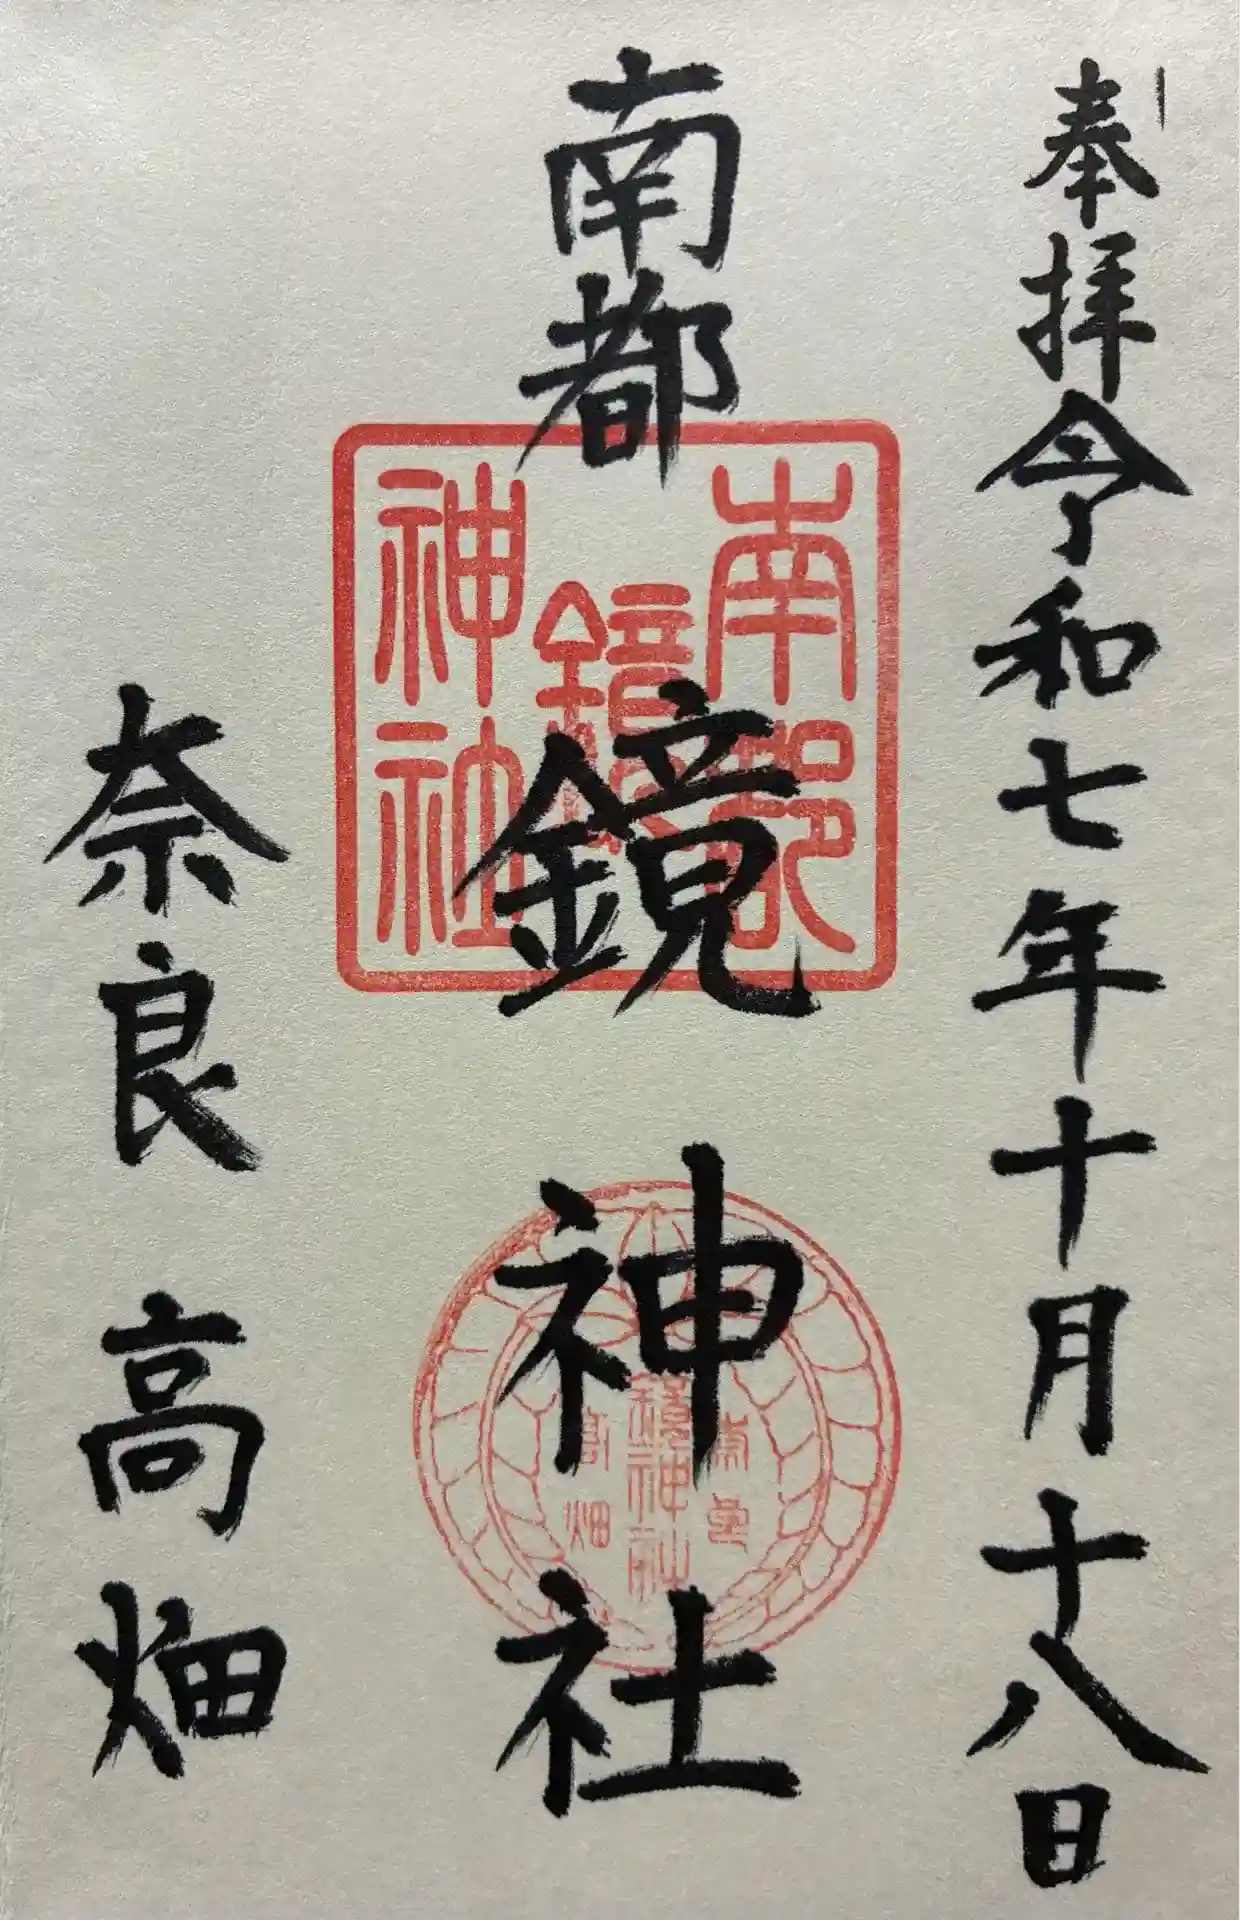 奉拝令和七年十月十八日
南都
鏡神社
奈良高畑
南都
鏡
神社
鏡神社
高畑